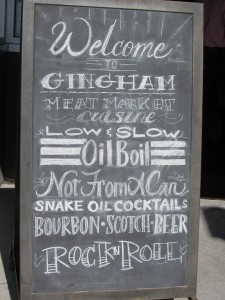 Welcome
TO
GINGHAM
MEAT MARKET
cuisine
LOW & SLOW
Oil Boil
Not From A Can
SNAKE OIL COCKTAILS
BOURBON · SCOTCH · BEER
ROCK N ROLL